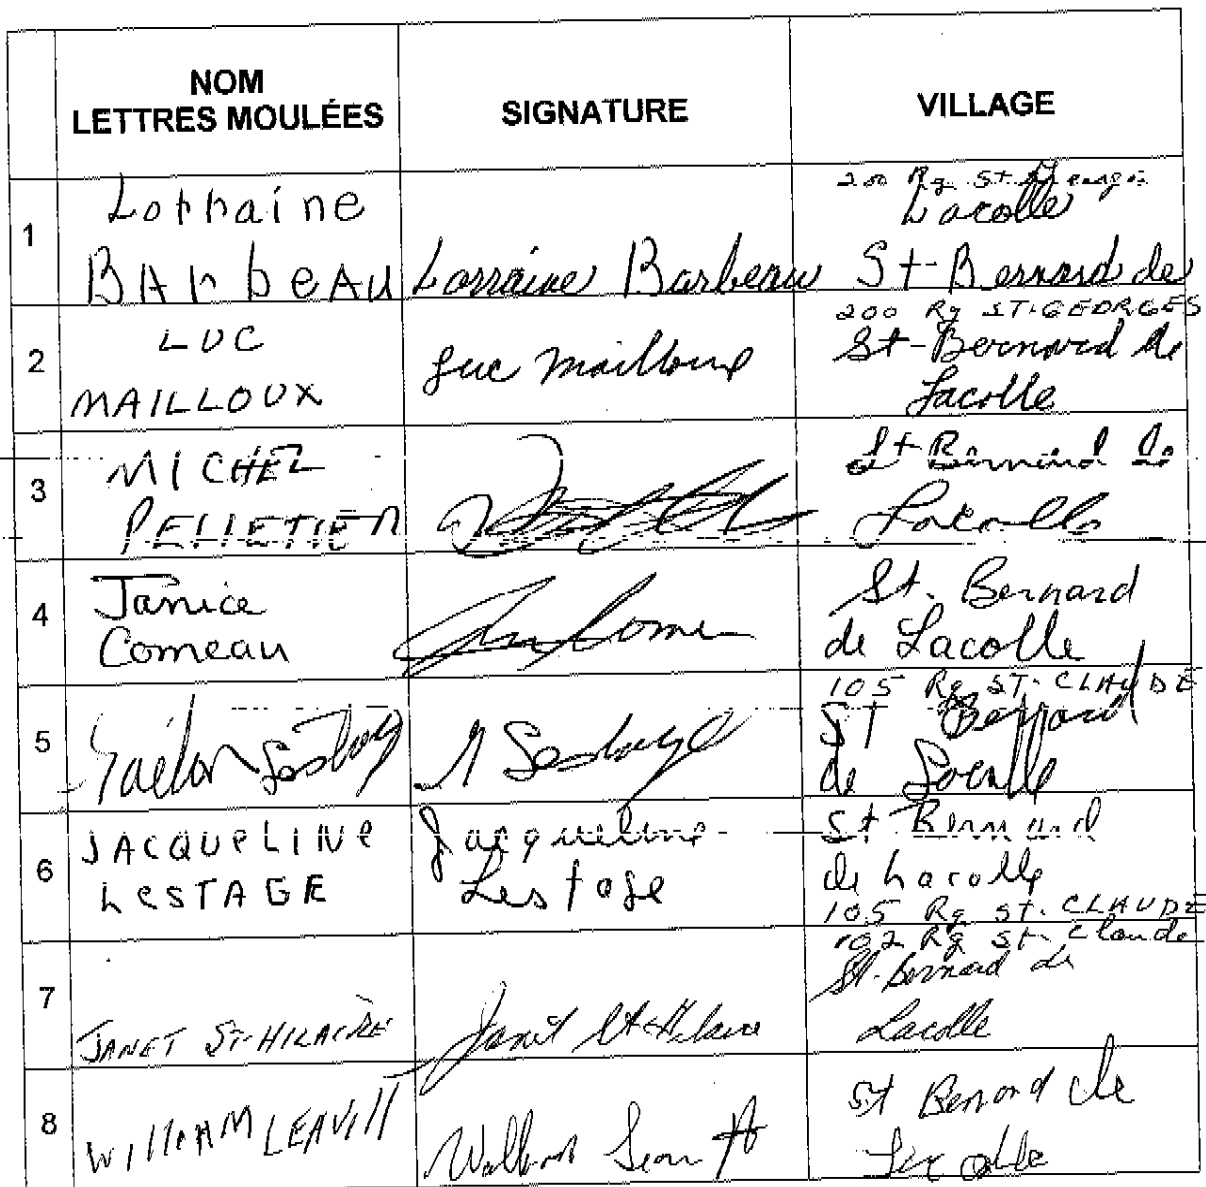 NOM
LETTRES MOULÉES
SIGNATURE
VILLAGE
1
Lorraine
BArbeAu
Lorraine Barbeau
200 Rg St Georges
Lacolle
St-Bernard de
2
LUC
MAILLOUX
Luc Mailloux
200 Rg ST-GEORGES
St-Bernard de
Lacolle
3
MICHEL
PELLETIER
St Bernard de
Lacolle
4
Janice
Comeau
St. Bernard
de Lacolle
5
Lestage
105 Rg ST. CLAUDE
ST Bernard
de Lacolle
6
JACQUeLINe
LeSTAGE
Jacqueline
Lestage
St Bernard
de Lacolle
105 Rg St. CLAUDE
7
JANET ST-HILAIRE
Janet St-Hilaire
102 Rg St-Claude
St-Bernard de
Lacolle
8
WIllIAM LEAVITT
St Benard de
Lacolle